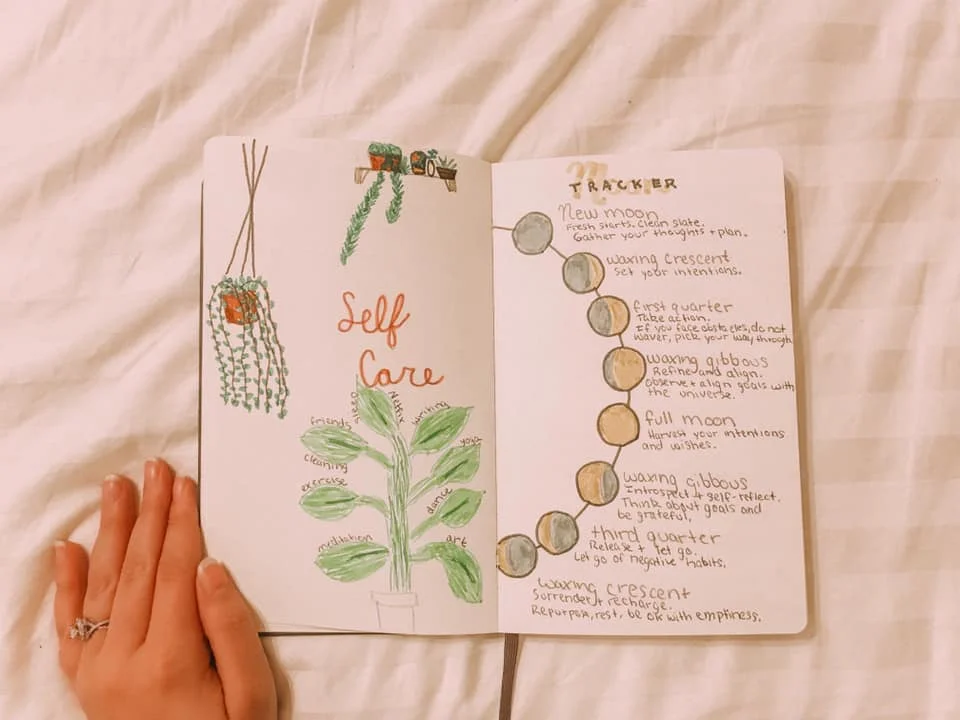 Self
Care
sleep
Netflix
writing
friends
yoga
cleaning
exercise
dance
meditation
art
Moon
TRACKER
New moon
Fresh starts. Clean slate.
Gather your thoughts + plan.
waxing crescent
Set your intentions.
first quarter
Take action.
If you face obstacles, do not
waver, pick your way through
waxing gibbous
Refine and align.
Observe + align goals with
the universe.
full moon
Harvest your intentions
and wishes.
waxing gibbous
Introspect + self-reflect.
Think about goals and
be grateful,
third quarter
Release + let go.
Let go of negative habits.
waxing crescent
Surrender + recharge.
Repurpose, rest, be ok with emptiness.